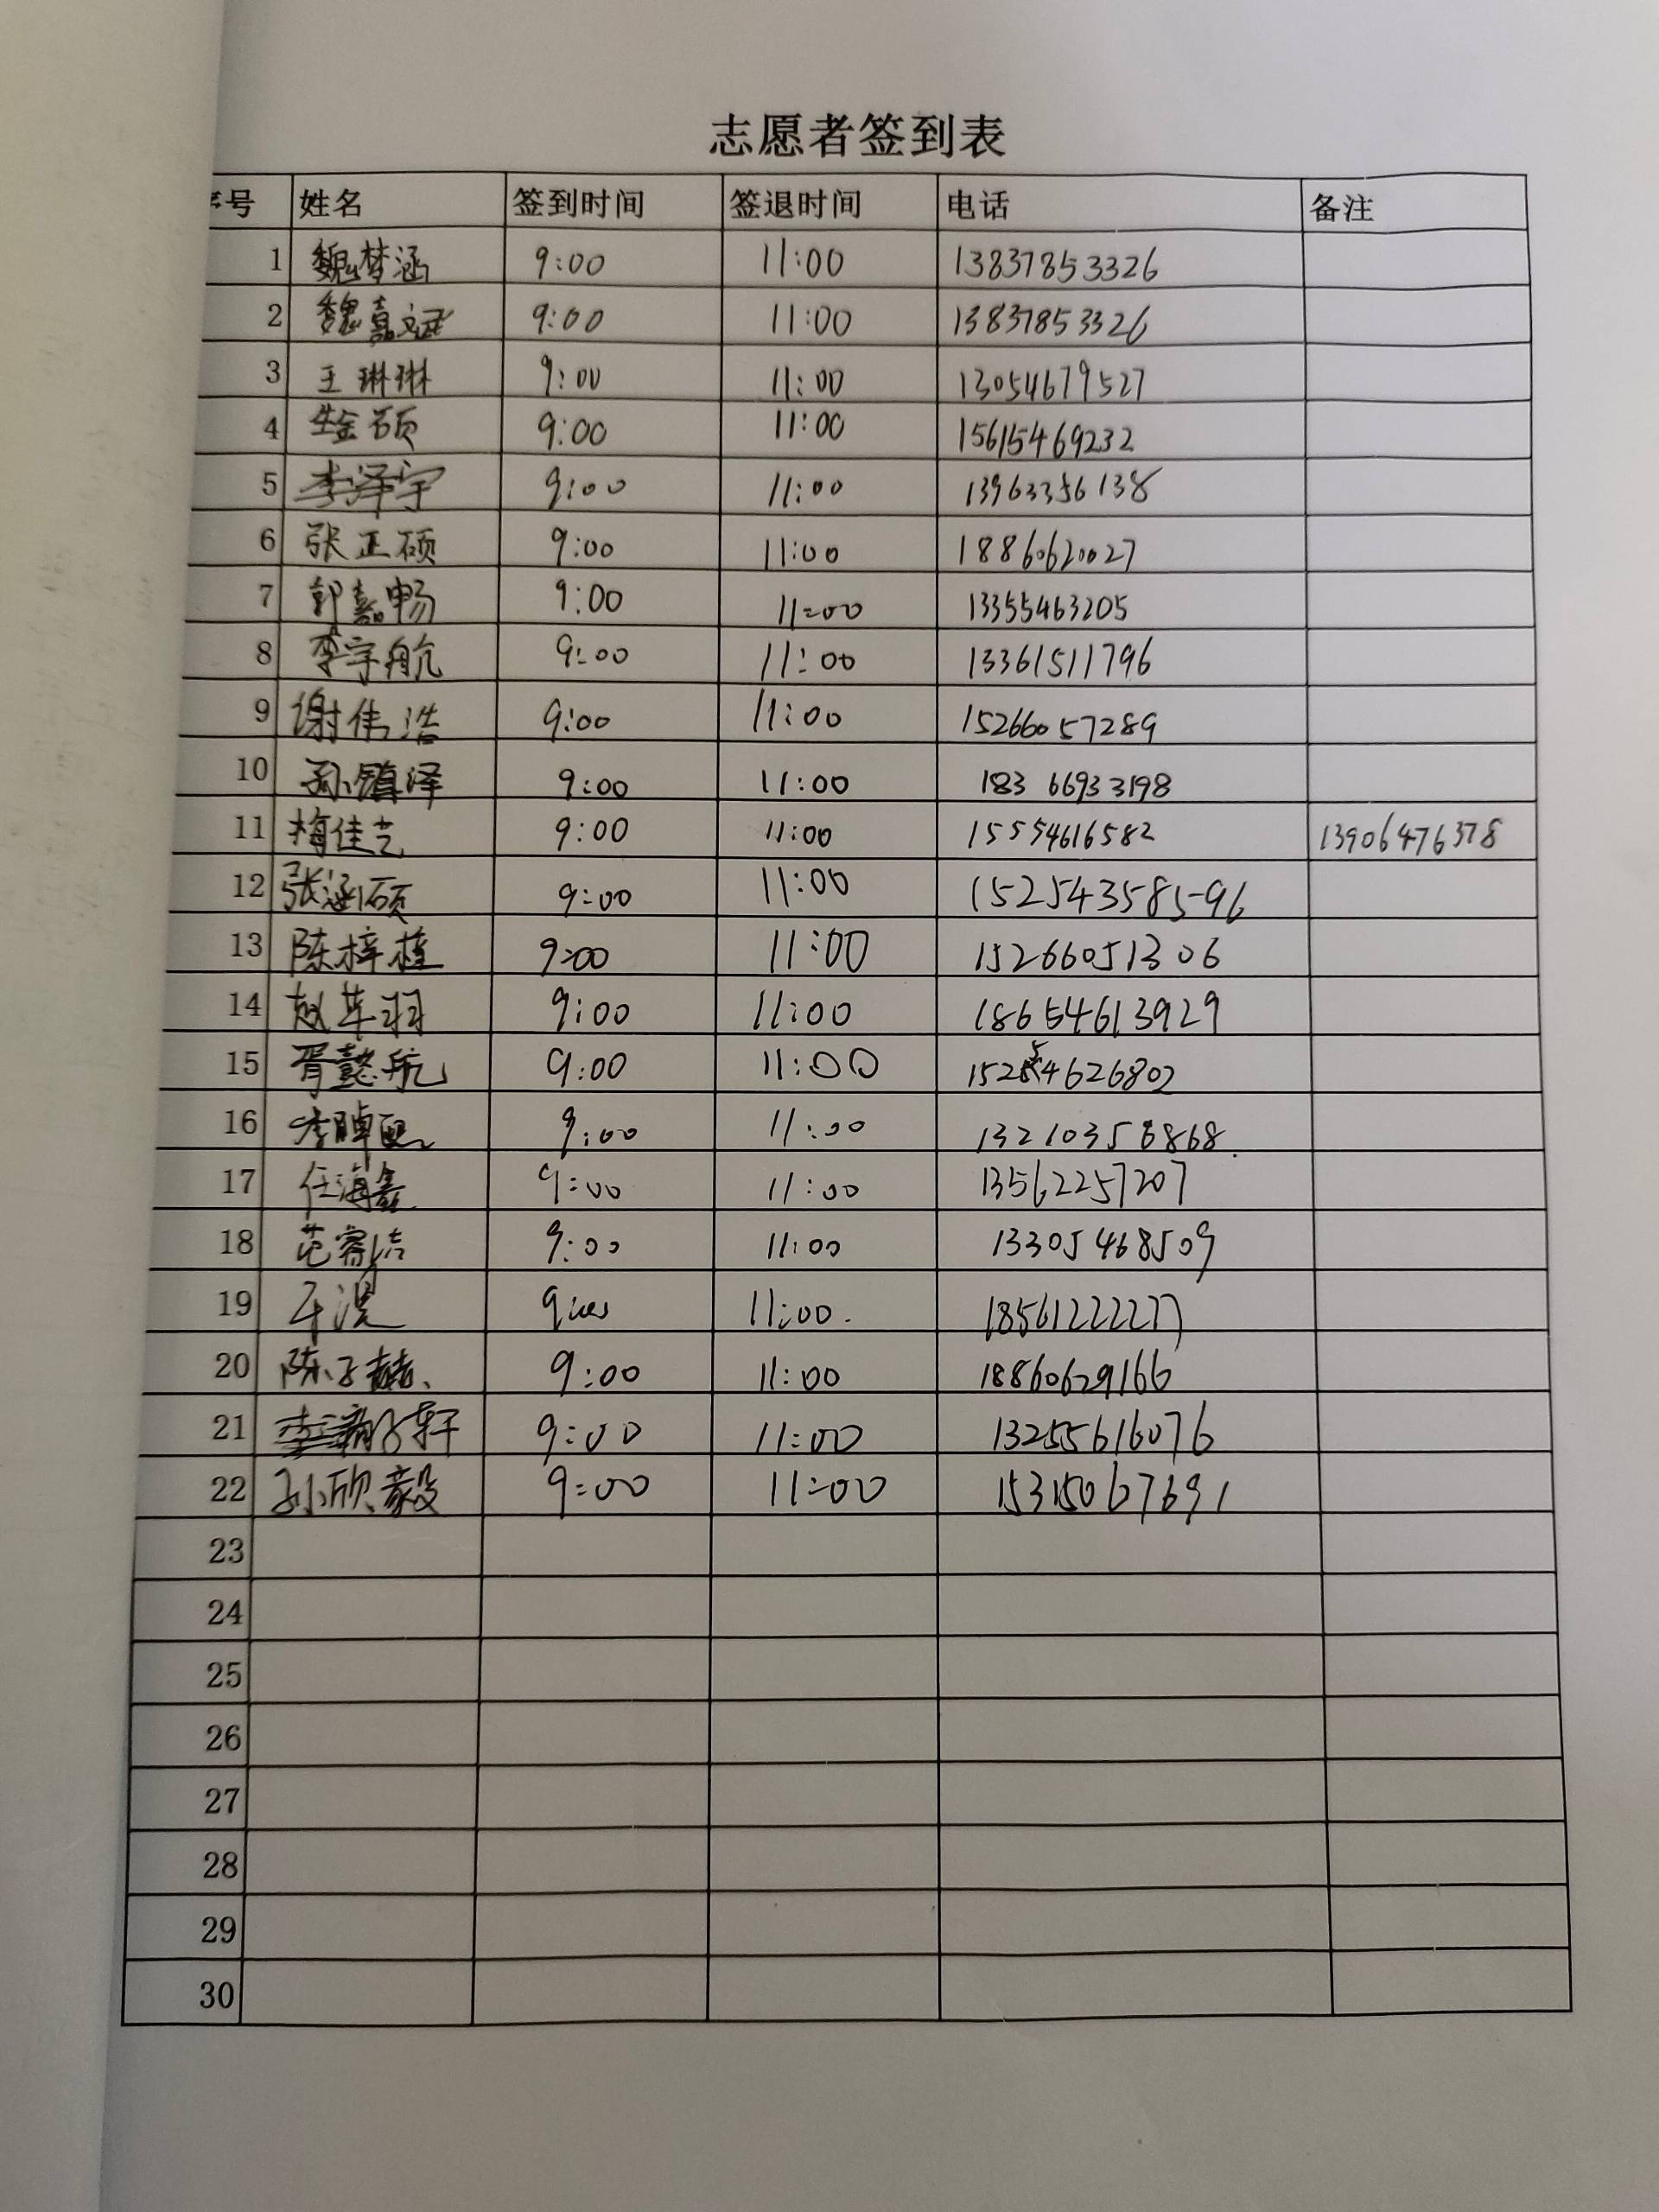 志愿者签到表
序号 姓名 签到时间 签退时间 电话 备注
1 魏梦涵 9:00 11:00 13837853326
2 魏嘉斌 9:00 11:00 13837853326
3 王琳琳 9:00 11:00 13054679527
4 9:00 11:00 15615469232
5 李泽宇 9:00 11:00 13963356138
6 张正硕 9:00 11:00 18860620027
7 郭嘉畅 9:00 11:00 13355463205
8 李宇航 9:00 11:00 13361511796
9 谢伟浩 9:00 11:00 15266057289
10 孙镇泽 9:00 11:00 183 6693 3198
11 梅佳艺 9:00 11:00 15554616582 13906476378
12 张涵硕 9:00 11:00 15254358596
13 陈梓 9:00 11:00 15266051306
14 赵 羽 9:00 11:00 18654613929
15 胥懿航 9:00 11:00 15254626802
16 李 9:00 11:00
17 任海鑫 9:00 11:00 13562257207
18 范 9:00 11:00 13305468509
19 9:00 11:00. 18561222277
20 陈子赫 9:00 11:00 18860629166
21 李 轩 9:00 11:00 13255616076
22 孙欣毅 9:00 11:00 15315067691
23
24
25
26
27
28
29
30